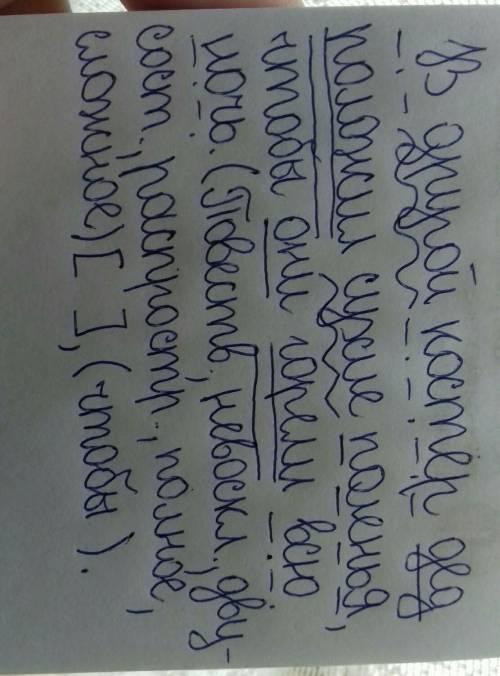 В другой костер дед
положил сухие поленья,
чтобы они горели всю
ночь. (Повеств., невоскл., дву-
сост., распростр., полное,
сложное) [ ], (чтобы ).